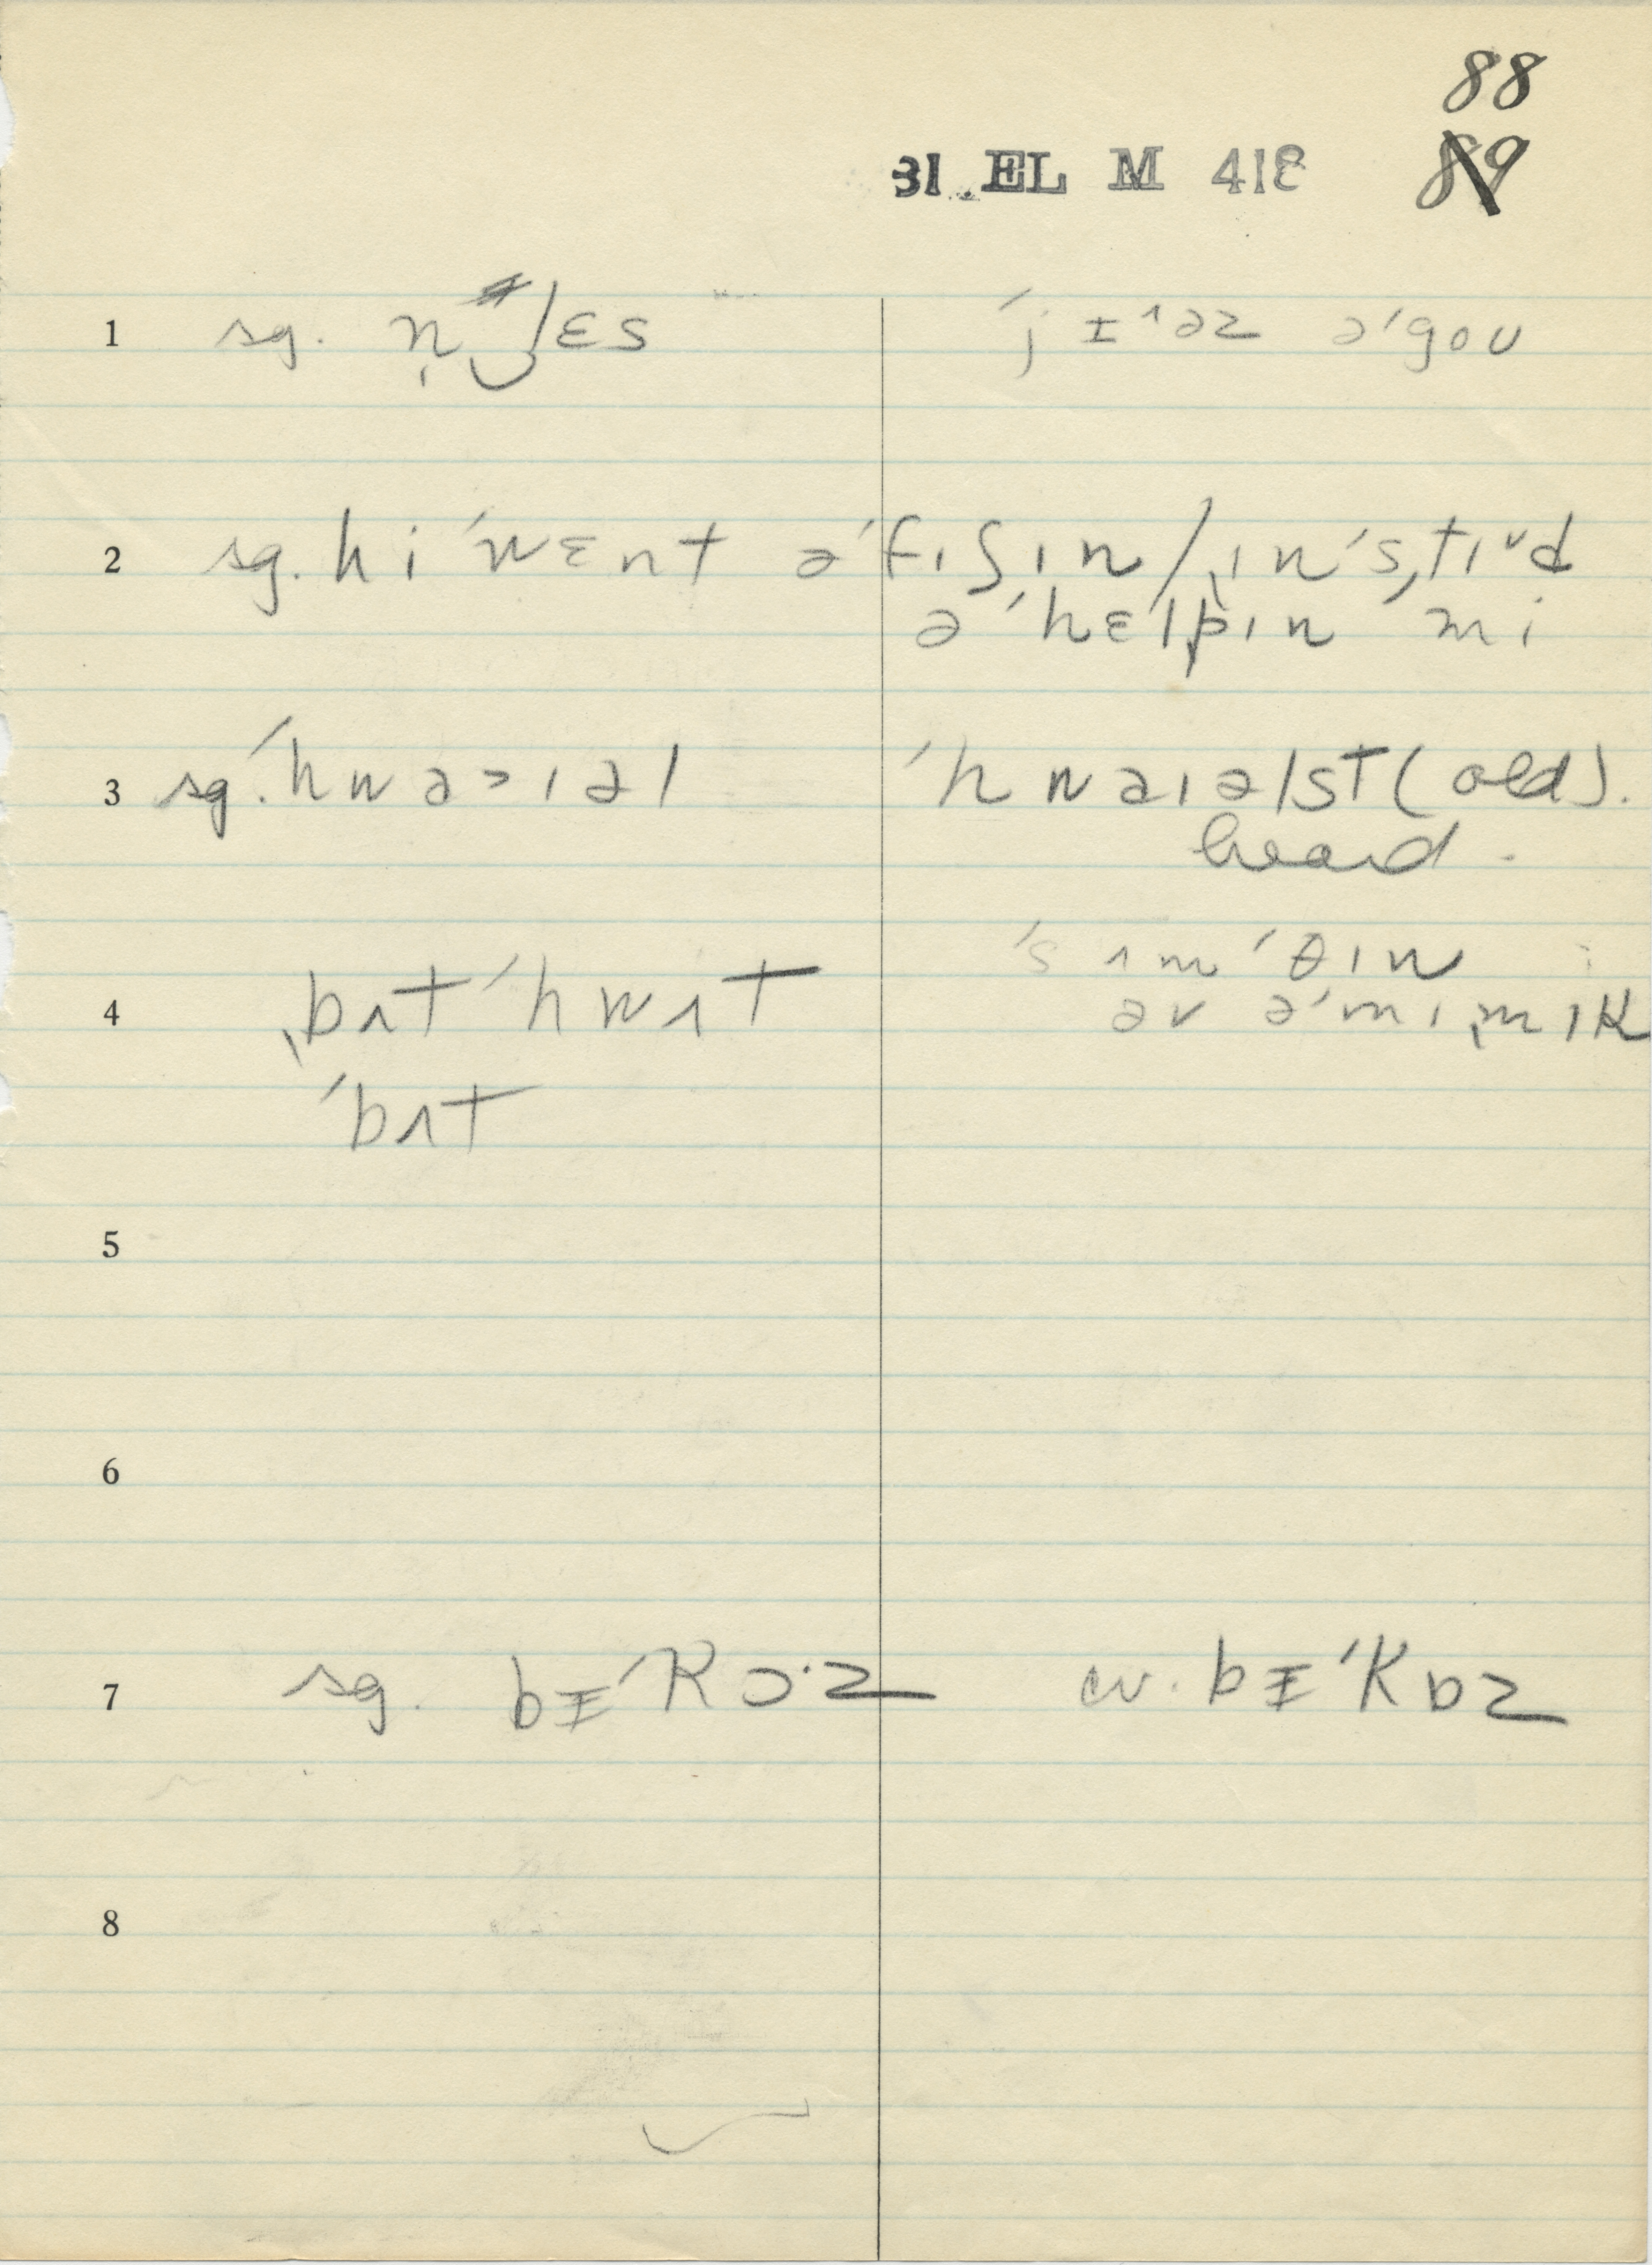 88
31 EL M 418 89
1 sg. n̩‿lɛs ˈjɪ^əz əˈgoʊ
2 sg. hi ˈwɛnt əˈfɪʃɪn/ˌɪnˈsˌtɪᵛd
əˈhɛlpɪn mi
3 sg. ˈhwa>ɪəl ˈhwaɪəlst (old).
heard.
4 ˌbʌt ˈhwʌt ˈsʌmˈθɪn
əv əˈmɪˌmɪk
ˈbʌt
5
6
7 sg. bɪˈkɔ·z cv. bɪˈkɒz
8